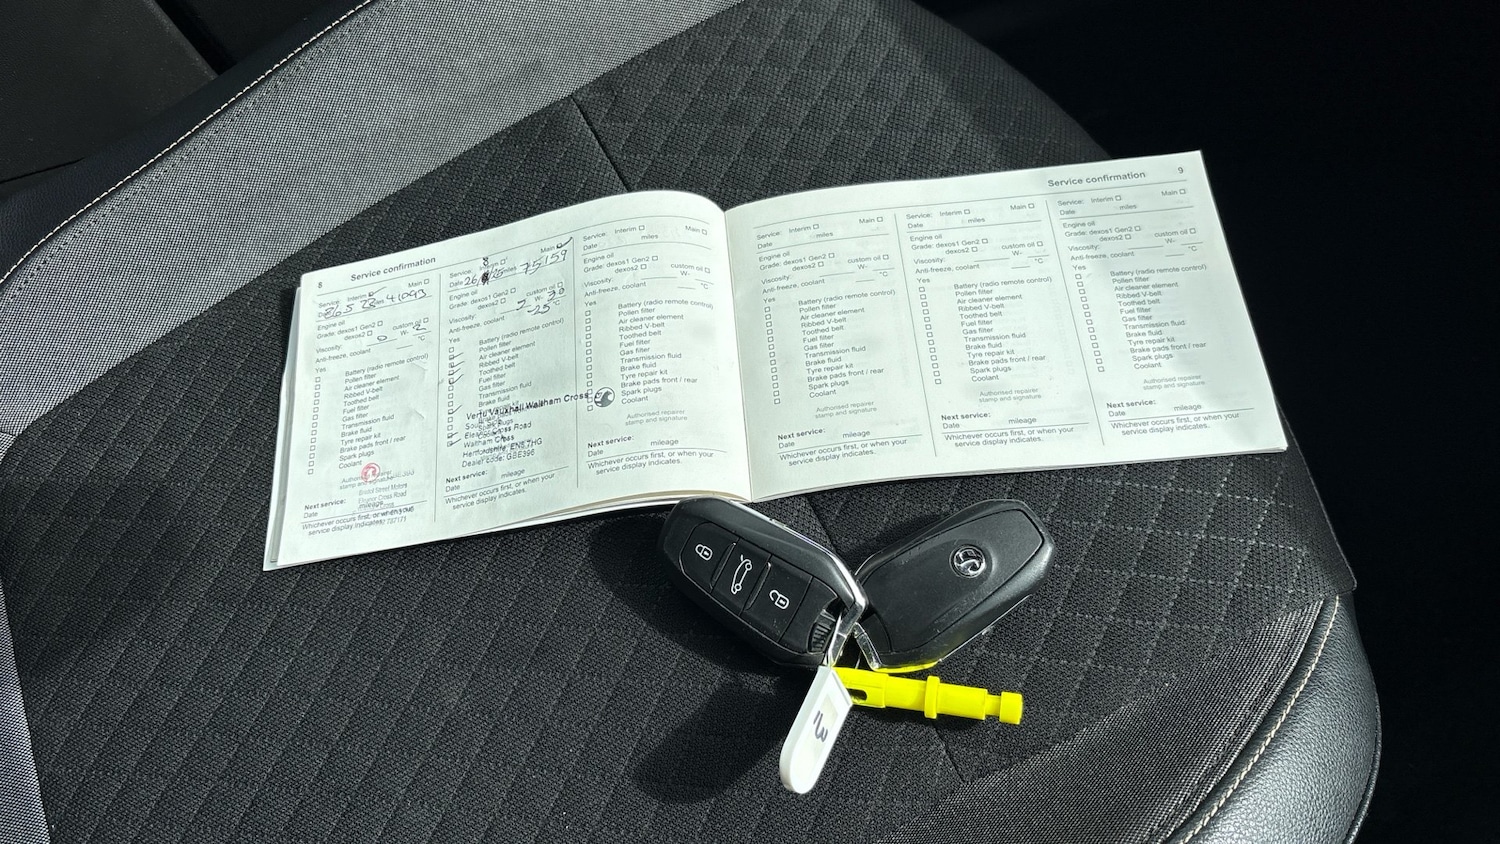 8 Service confirmation
Service: Interim Main
41093
Engine oil
Grade: dexos1 Gen2
dexos2 custom oil
Viscosity: W-
Anti-freeze, coolant °C
Yes
Battery (radio remote control)
Pollen filter
Air cleaner element
Ribbed V-belt
Toothed belt
Fuel filter
Gas filter
Transmission fluid
Brake fluid
Tyre repair kit
Brake pads front / rear
Spark plugs
Coolant
stamp and signature
Bristol Street Motors
Eleanor Cross Road
Next service: mileage
Date
Whichever occurs first, or when your
service display indicates.
Service: Interim Main
Date 26 miles 75159
Engine oil
Grade: dexos1 Gen2
dexos2 custom oil
Viscosity: W-
Anti-freeze, coolant -25 °C
Yes
Battery (radio remote control)
Pollen filter
Air cleaner element
Ribbed V-belt
Toothed belt
Fuel filter
Gas filter
Transmission fluid
Brake fluid
Vertu Vauxhall Waltham Cross
Eleanor Cross Road
Waltham Cross
Hertfordshire, EN8 7HG
Dealer code: GBE396
Next service: mileage
Date
Whichever occurs first, or when your
service display indicates.
Service: Interim Main
Date miles
Engine oil
Grade: dexos1 Gen2
dexos2 custom oil
Viscosity: W-
Anti-freeze, coolant °C
Yes
Battery (radio remote control)
Pollen filter
Air cleaner element
Ribbed V-belt
Toothed belt
Fuel filter
Gas filter
Transmission fluid
Brake fluid
Tyre repair kit
Brake pads front / rear
Spark plugs
Coolant
Authorised repairer
stamp and signature
Next service: mileage
Date
Whichever occurs first, or when your
service display indicates.
Service confirmation 9
Service: Interim Main
Date miles
Engine oil
Grade: dexos1 Gen2
dexos2 custom oil
Viscosity: W-
Anti-freeze, coolant °C
Yes
Battery (radio remote control)
Pollen filter
Air cleaner element
Ribbed V-belt
Toothed belt
Fuel filter
Gas filter
Transmission fluid
Brake fluid
Tyre repair kit
Brake pads front / rear
Spark plugs
Coolant
Authorised repairer
stamp and signature
Next service:
Date mileage
Whichever occurs first, or when your
service display indicates.
Service: Interim Main
Date miles
Engine oil
Grade: dexos1 Gen2
dexos2 custom oil
Viscosity: W-
Anti-freeze, coolant °C
Yes
Battery (radio remote control)
Pollen filter
Air cleaner element
Ribbed V-belt
Toothed belt
Fuel filter
Gas filter
Transmission fluid
Brake fluid
Tyre repair kit
Brake pads front / rear
Spark plugs
Coolant
Authorised repairer
stamp and signature
Next service:
Date mileage
Whichever occurs first, or when your
service display indicates.
Service: Interim Main
Date miles
Engine oil
Grade: dexos1 Gen2
dexos2 custom oil
Viscosity: W-
Anti-freeze, coolant °C
Yes
Battery (radio remote control)
Pollen filter
Air cleaner element
Ribbed V-belt
Toothed belt
Fuel filter
Gas filter
Transmission fluid
Brake fluid
Tyre repair kit
Brake pads front / rear
Spark plugs
Coolant
Authorised repairer
stamp and signature
Next service:
Date mileage
Whichever occurs first, or when your
service display indicates.